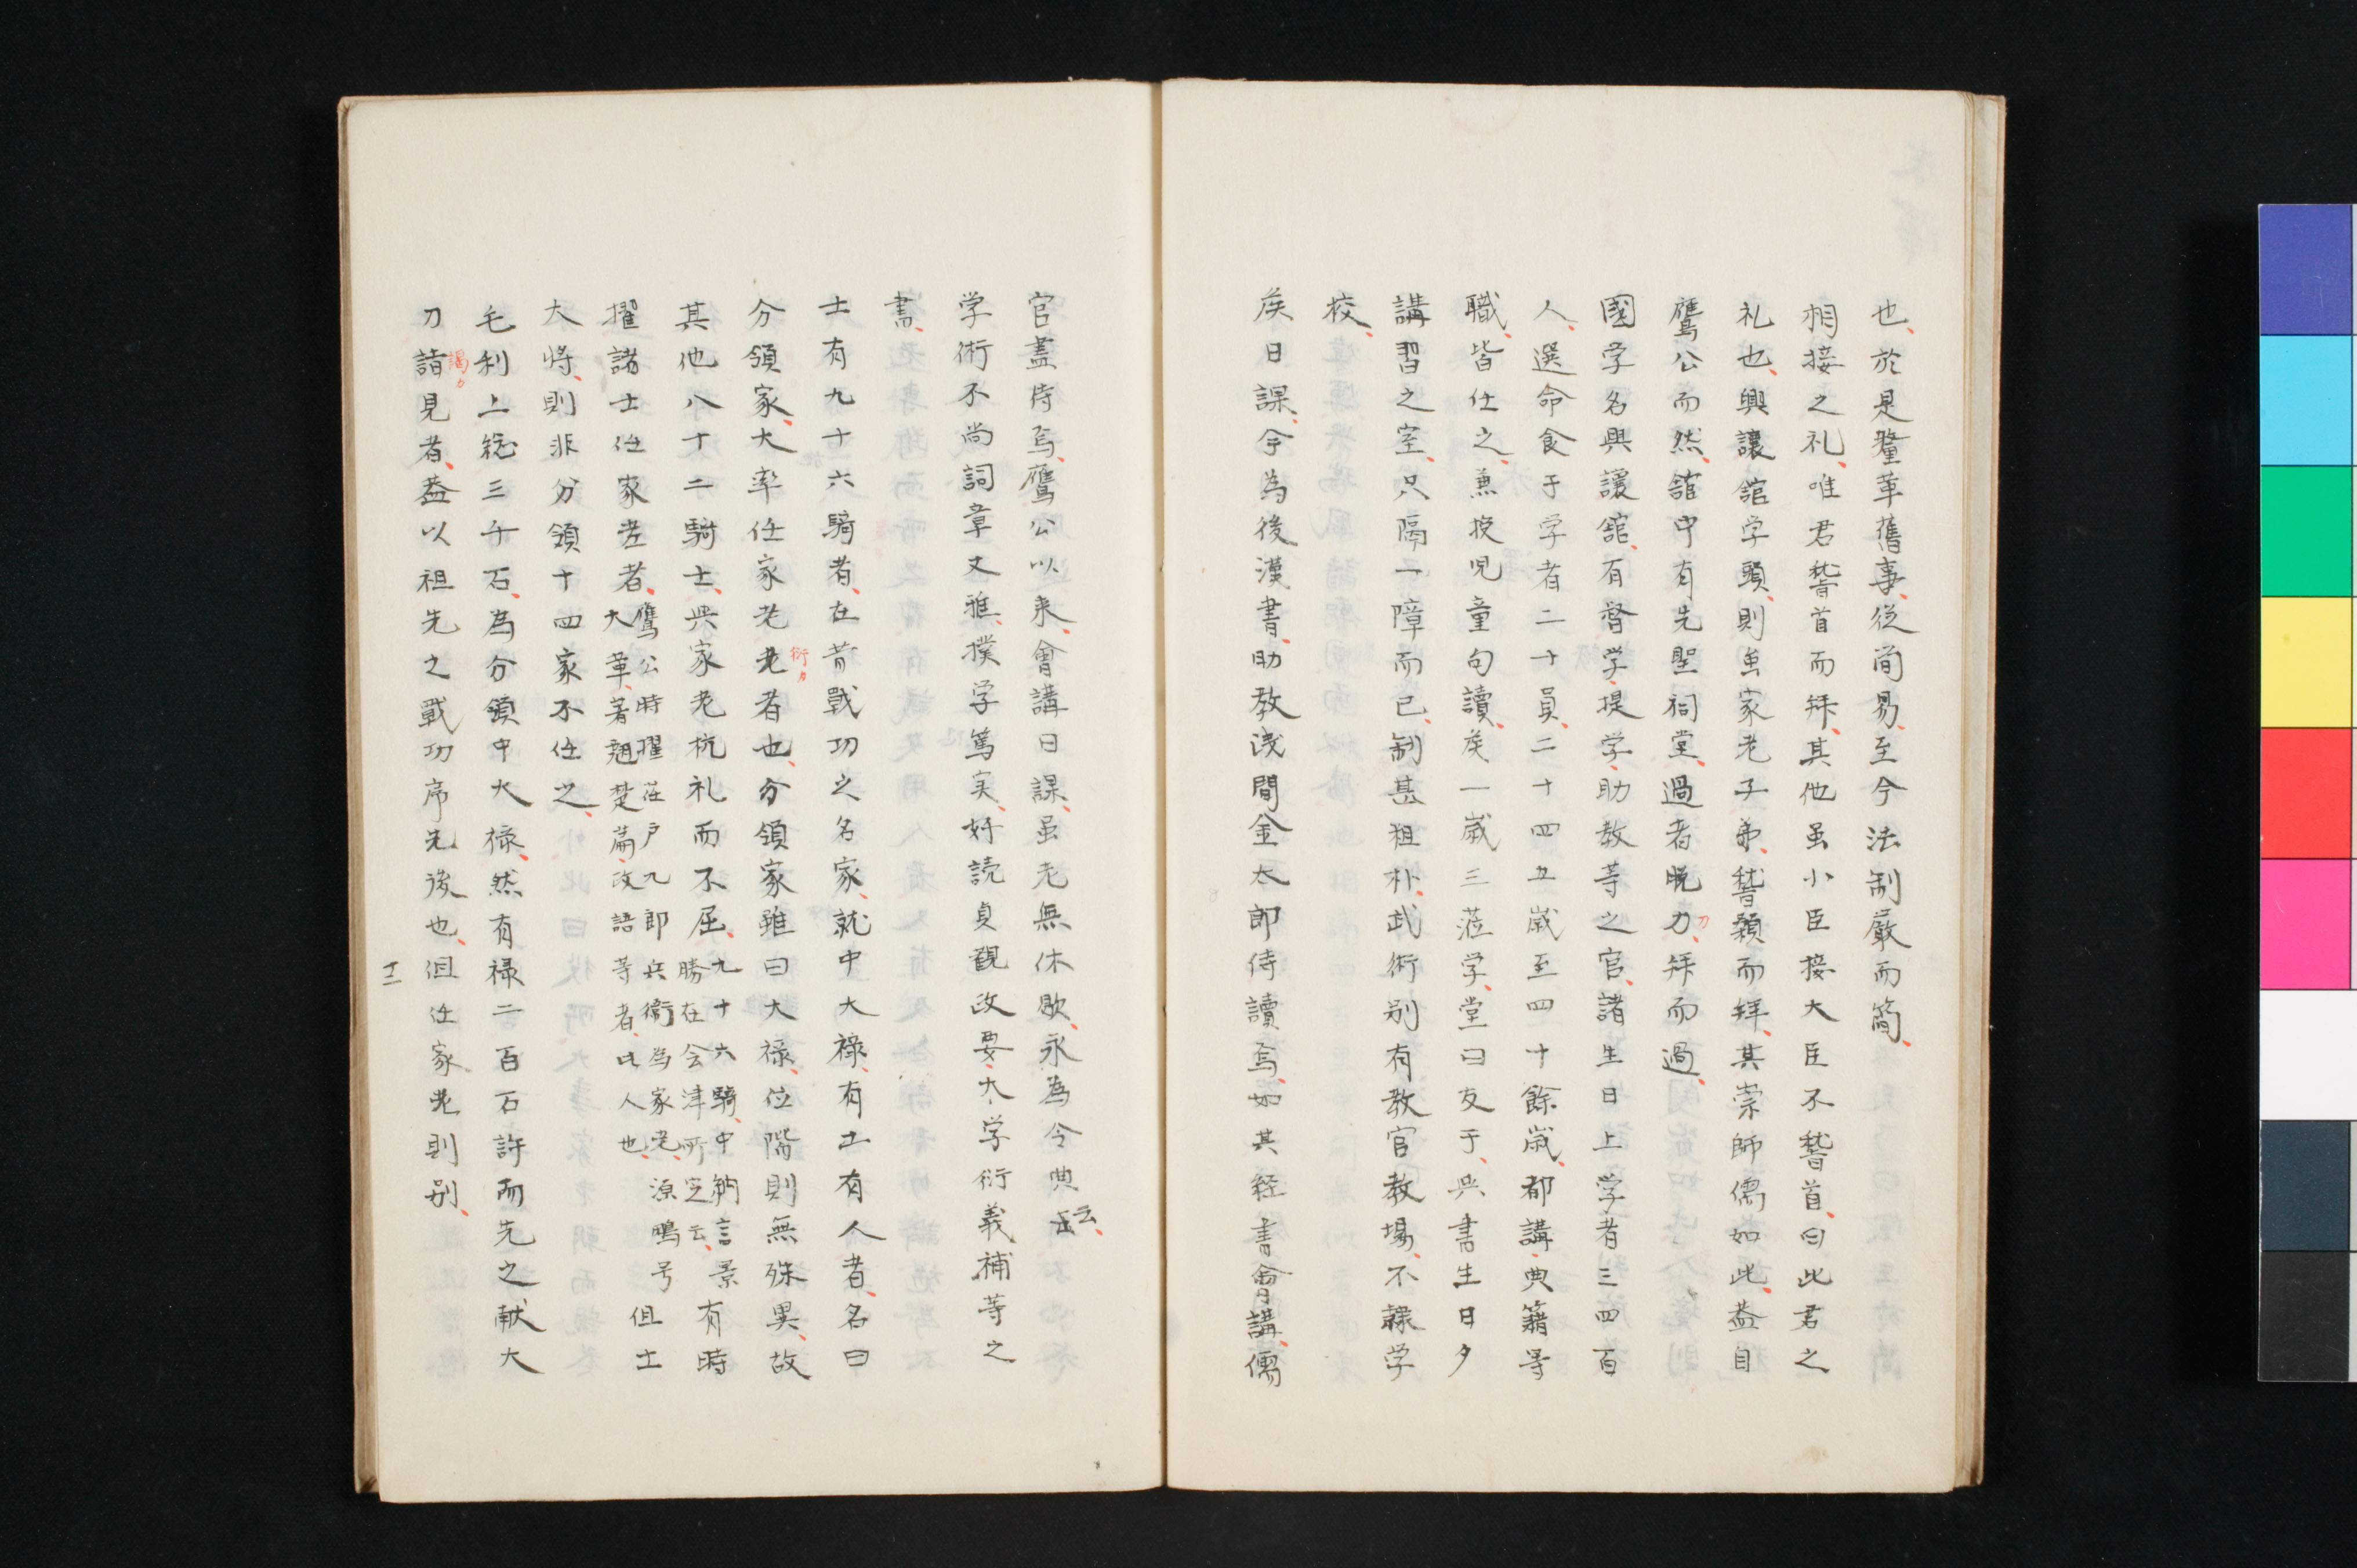 也、於是釐革舊事、従簡易、至今法制嚴而簡、
相接之礼、唯君稽首而拜、其他虽小臣接大臣不稽首、曰此君之
礼也、興讓舘学頭、則虽家老子弟、稽顙而拜、其崇師儒如此、蓋自
鷹公而然、舘中有先聖祠堂、過者晩力、拜而過、
刀
國学名興讓舘、有督学、提学、助教等之官、諸生日上学者三四百
人、選命食于学者二十員、二十四五歳至四十餘歳、都講、典籍等
職、皆仕之、兼授児童句讀、矦一歳三莅学、堂曰友于、与書生日夕
講習之室、只隔一障而已、制甚粗朴、武術别有教官教場、不隷学
校、
矦日課、今為後漢書、助教浅間金太郎侍讀焉、如其経書會講、儒
官盡侍焉、鷹公以来、會講日課、虽老無休歇、永為令典云云、
学術不尚詞章文雅、撲学篤実、好読貞觀政要、大学衍義補等之
書、
士有九十六騎者、在昔戰功之名家、就中大禄、有士有人者、名曰
分領家、大率任家老老者也、分領家雖曰大禄、位階則無殊異、故
衍力
其他八十二騎士、与家老杭礼而不屈、九十六騎、中納言景勝在会津所定云、有時
擢諸士任家老者、鷹公時擢莅戸九郎兵衞為家老、源鳴号大華、著翹楚篇、政語等者、此人也、但士
大将、則非分領十四家不任之、
毛利上総三千石、為分領中大禄、然有禄二百石許而先之献大
刀詣見者、蓋以祖先之戰功序先後也、但任家老則别、
謁力
十二